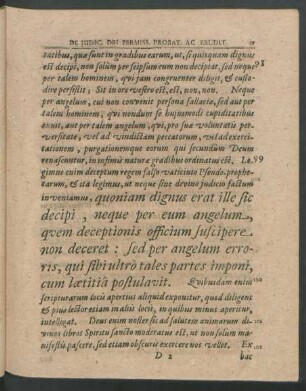 DE JUDIC. DEI PERMISS. PROBAT. AC ERUDIT. 27
ratibus, quæ sunt in gradibus earum, ut, si quisquam dignus
est decipi, non solùm per seipsum eum non decipiat, sed neque 98
per talem hominem, qvi jam congruenter diligit, & custo-
dire persistit; Sit in ore vestro est, est, non, non. Neque
per angelum, cui non convenit persona fallacis, sed aut per
talem hominem, qvi nondum se hujusmodi cupiditatibus
exuit, aut per talem angelum, qvi, pro suæ voluntatis per-
versitate, vel ad vindictam peccatorum, vel ad exerci-
tationem, purgationemque eorum qui secundùm Deum
renascuntur, in infimis naturæ gradibus ordinatus est. Le- 99
gimus enim deceptum regem falso vaticinio Pseudo-prophe-
tarum, & ità legimus, ut neque sine divino judicio factum
inveniamus, quoniam dignus erat ille sic
decipi, neque per eum angelum,
qvem deceptionis officium suscipere
non deceret: sed per angelum erro-
ris, qui sibi ultrò tales partes imponi,
cum lætitiâ postulavit. Quibusdam enim 100
scripturarum locis apertius aliquid exponitur, quod diligens
& pius lector etiam in aliis locis, in quibus minus aperitur,
intellegat. Deus enim noster sic ad salutem animarum di- 101
vinos libros Spiritu sancto moderatus est, ut non solùm ma-
nifestis pascere, sed etiam obscuris exercere nos vellet. Ex
D 2 hac